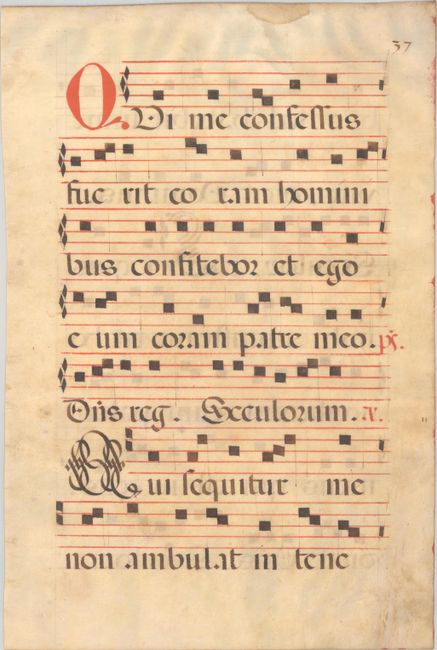 37
QVi me confessus
fue rit co ram homini
bus confitebor et ego
e um coram patre meo. ps.
Dns reg. Seculorum. a.
Qui sequitur me
non ambulat in tene